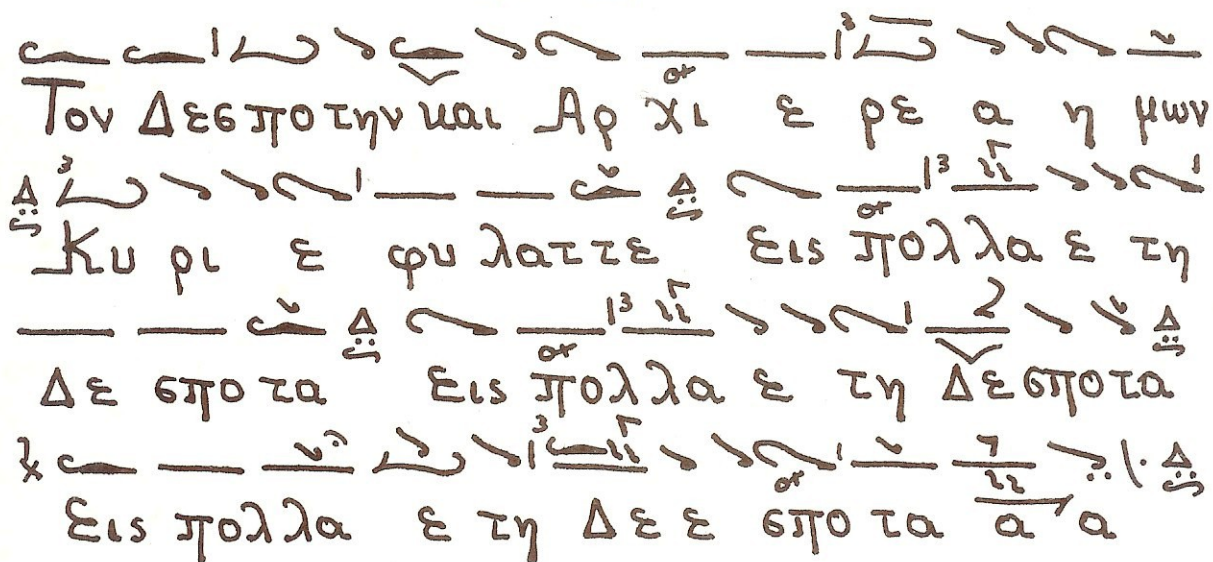 Τον Δεσποτην και Αρ χι ε ρε α η μων
Κυ ρι ε φυ λατ τε Εις πολλα ε τη
Δε σπο τα Εις πολλα ε τη Δεσποτα
Εις πολλα ε τη Δε ε σπο τα α α